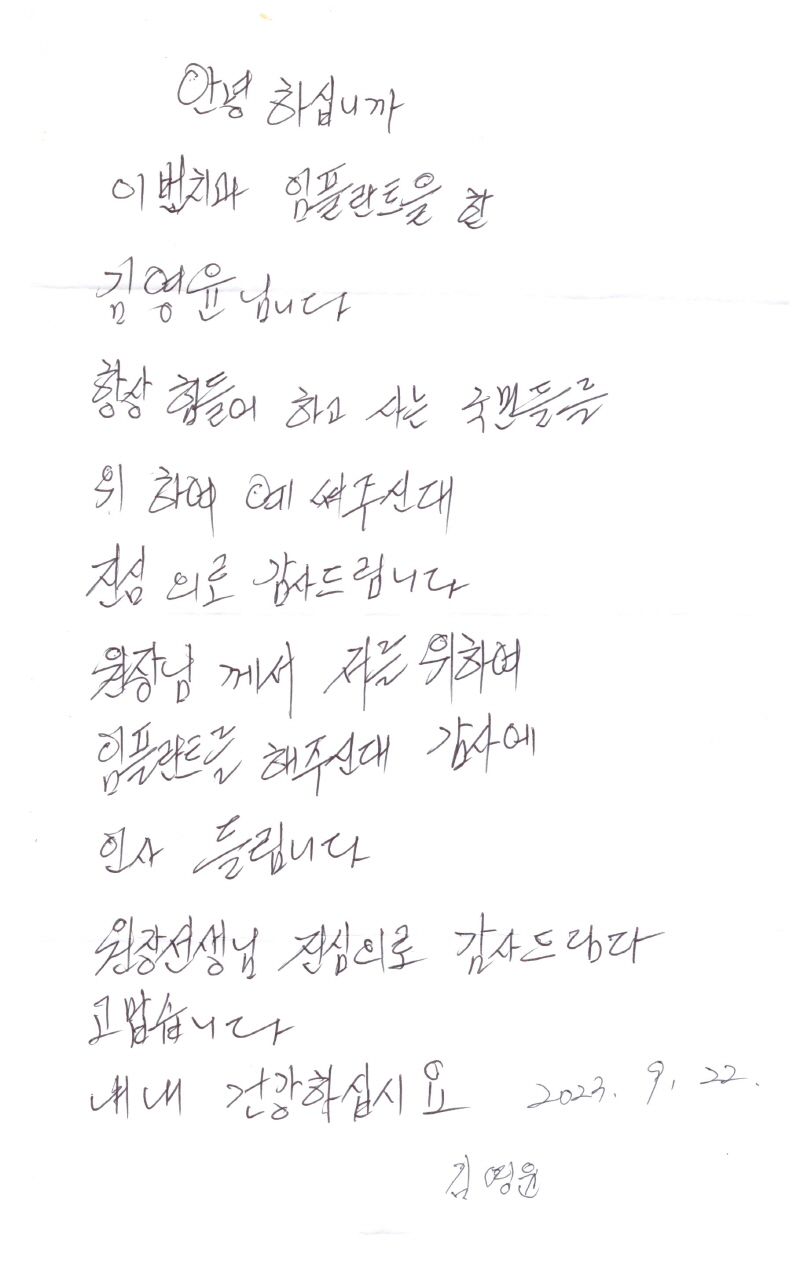 안녕 하십니까
이번치과 임플란트을 한
김영윤님니다
항상 힘들어 하고 사는 국민들를
위 하여 예 써주신대
진심 의로 감사드립니다
원장님 께서 저를 위하여
임플란트를 해주신대 감사에
인사 들립니다
원장선생님 진심의로 감사드림다
고맙습니다
내내 건강하십시요 2023. 9. 22.
김영윤